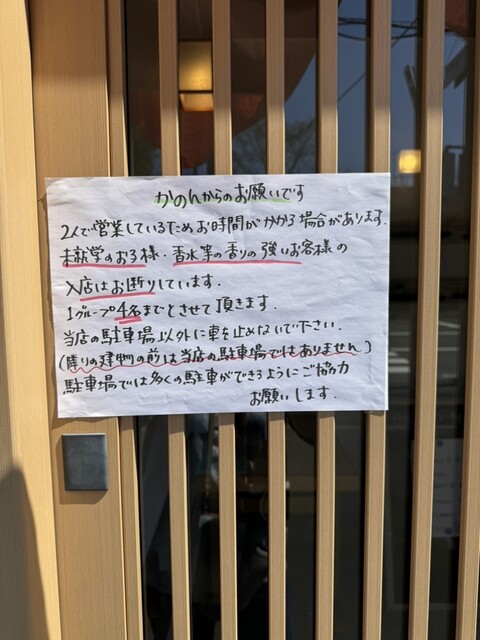 かのんからのお願いです
2人で営業しているためお時間がかかる場合があります.
未就学のお子様・香水等の香りの強いお客様の
入店はお断りしています.
1グループ4名までとさせて頂きます.
当店の駐車場以外に車を止めないで下さい.
(隣りの建物の前は当店の駐車場ではありません)
駐車場では多くの駐車ができるようにご協力
お願いします.